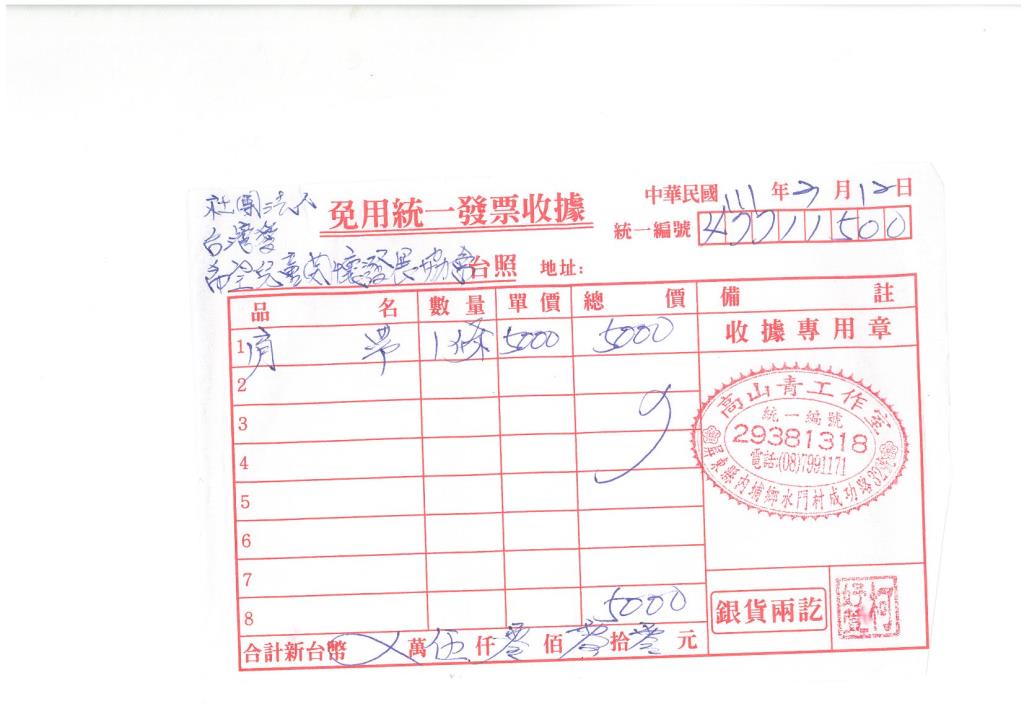 社團法人
台灣愛
希望兒童關懷發展協會台照 地址:
免用統一發票收據
中華民國111年2月12日
統一編號 47711500
品名 數量 單價 總價 備註
1 肩帶 1條 5000 5000
2
3
4
5
6
7
8 5000
合計新台幣 萬伍仟零佰零拾零元
收據專用章
高山青工作室
統一編號
29381318
電話:(08)7991171
屏東縣內埔鄉水門村成功路
銀貨兩訖